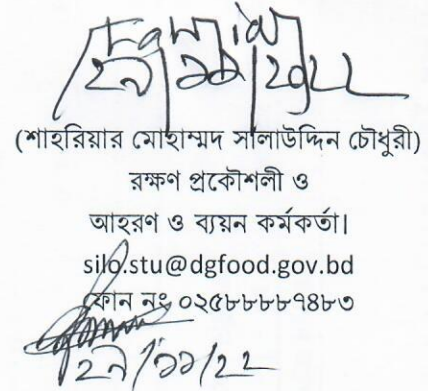 ২৯/১১/২০২২
(শাহরিয়ার মোহাম্মদ সালাউদ্দিন চৌধুরী)
রক্ষণ প্রকৌশলী ও
আহরণ ও ব্যয়ন কর্মকর্তা।
silo.stu@dgfood.gov.bd
ফোন নং ০২৫৮৮৮৮৭৪৮৩
২৯/১১/২২